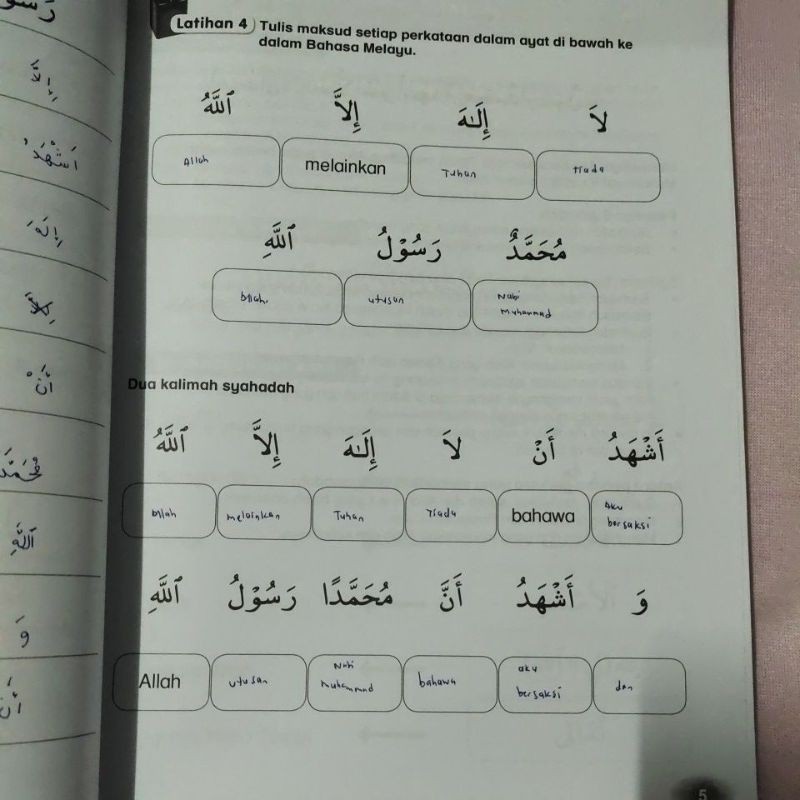 رَسُو
إِلاَّ
اَشْهَدُ
إِلَهَ
أَنْ
مُحَمَّدً
ٱللَّهِ
وَ
أَنَّ
Latihan 4 Tulis maksud setiap perkataan dalam ayat di bawah ke
dalam Bahasa Melayu.
لاَ إِلَـٰهَ إِلاَّ ٱللَّهُ
Allah melainkan Tuhan tiada
مُحَمَّدٌ رَسُوْلُ ٱللَّهِ
Allah utusan Nabi
muhammad
Dua kalimah syahadah
أَشْهَدُ أَنْ لاَ إِلَـٰهَ إِلاَّ ٱللَّهُ
Allah melainkan Tuhan Tiada bahawa Aku
bersaksi
وَ أَشْهَدُ أَنَّ مُحَمَّدًا رَسُوْلُ ٱللَّهِ
Allah utusan Nabi
muhammad bahawa aku
bersaksi dan
5